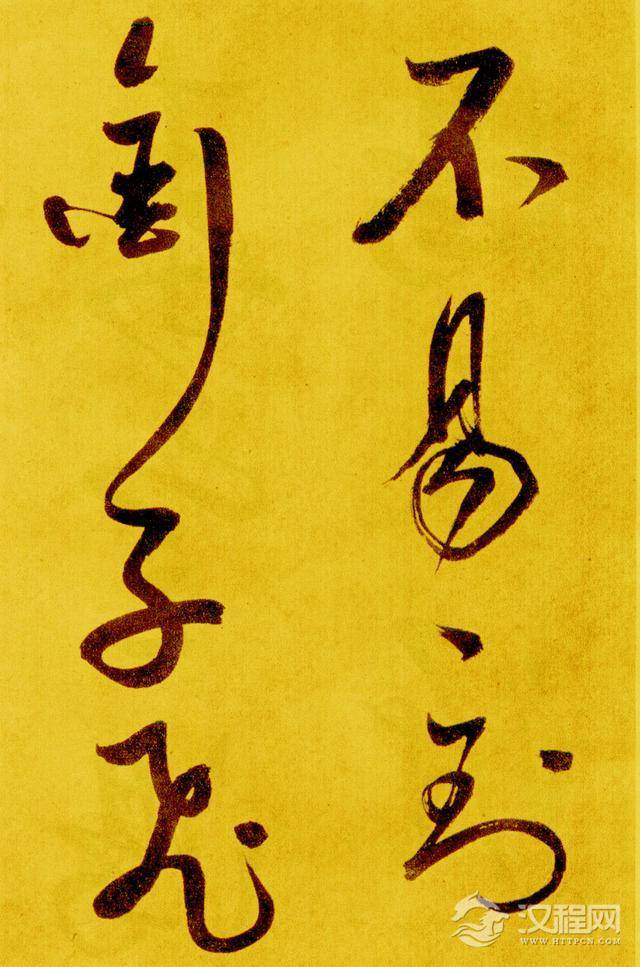 不易到
子飛
汉程网
WWW.HTTPCN.COM